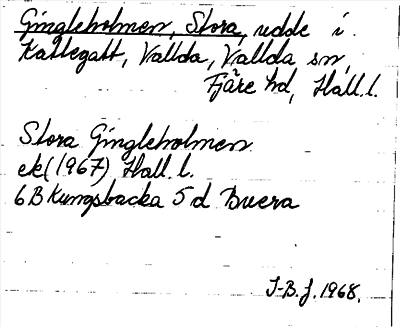 Gingleholmen, Stora, udde i
Kattegatt, Vallda, Vallda sn,
Fjäre hd, Hall. l.
Stora Gingleholmen
ek (1967) Hall. l.
6B Kungsbacka 5 d Buera
J-B. J. 1968.